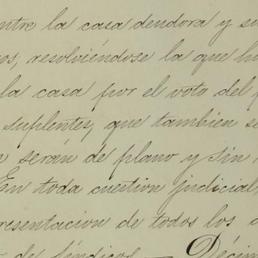 entre la casa deudora y su
os, resolviéndose la que hu
la casa por el voto del p
suplentes, que tambien se
n serán de plano y sin
En toda cuestion judicial,
presentacion de todos los a
de Síndicos. — Décim